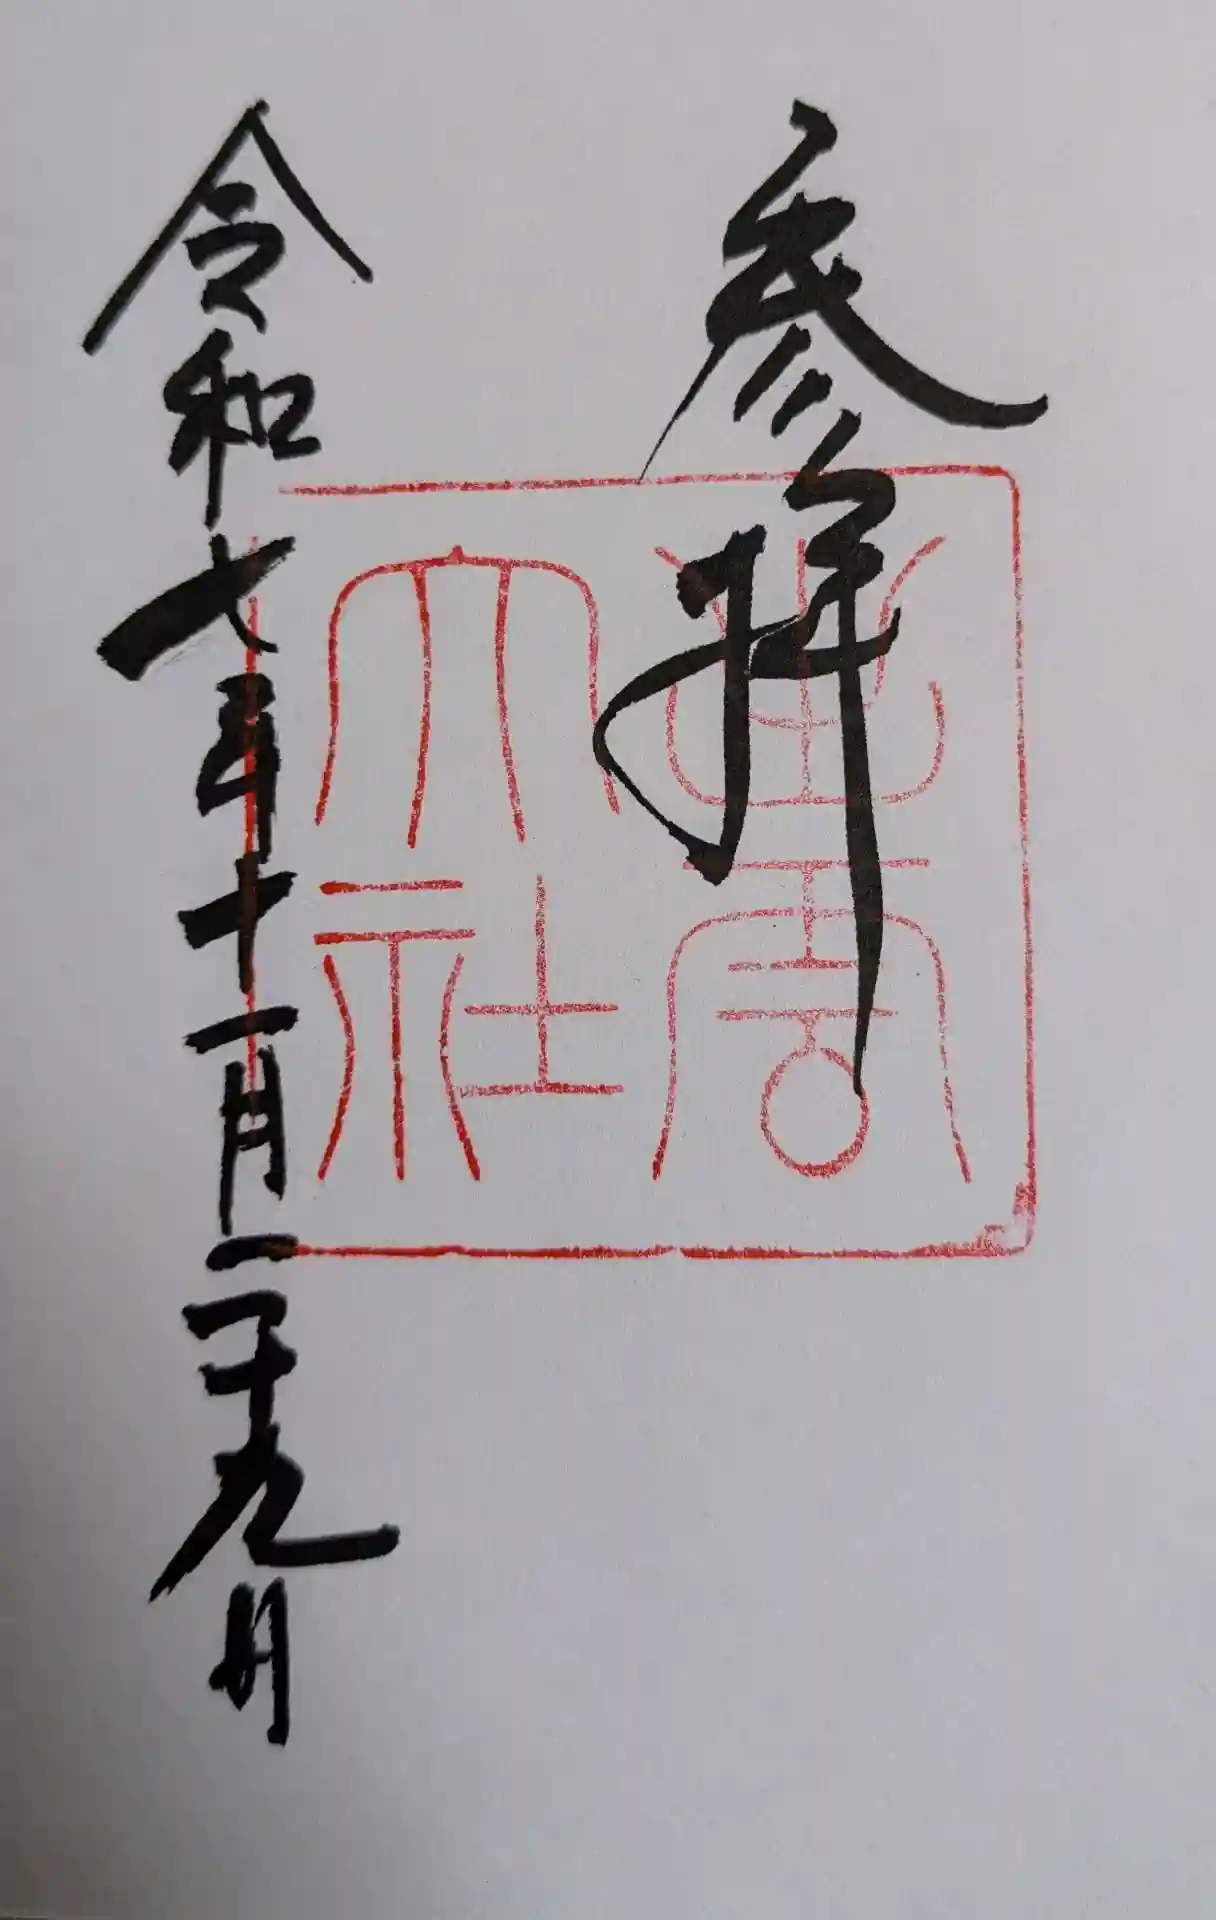 参拝
出雲
大社
令和七年十一月二十九日